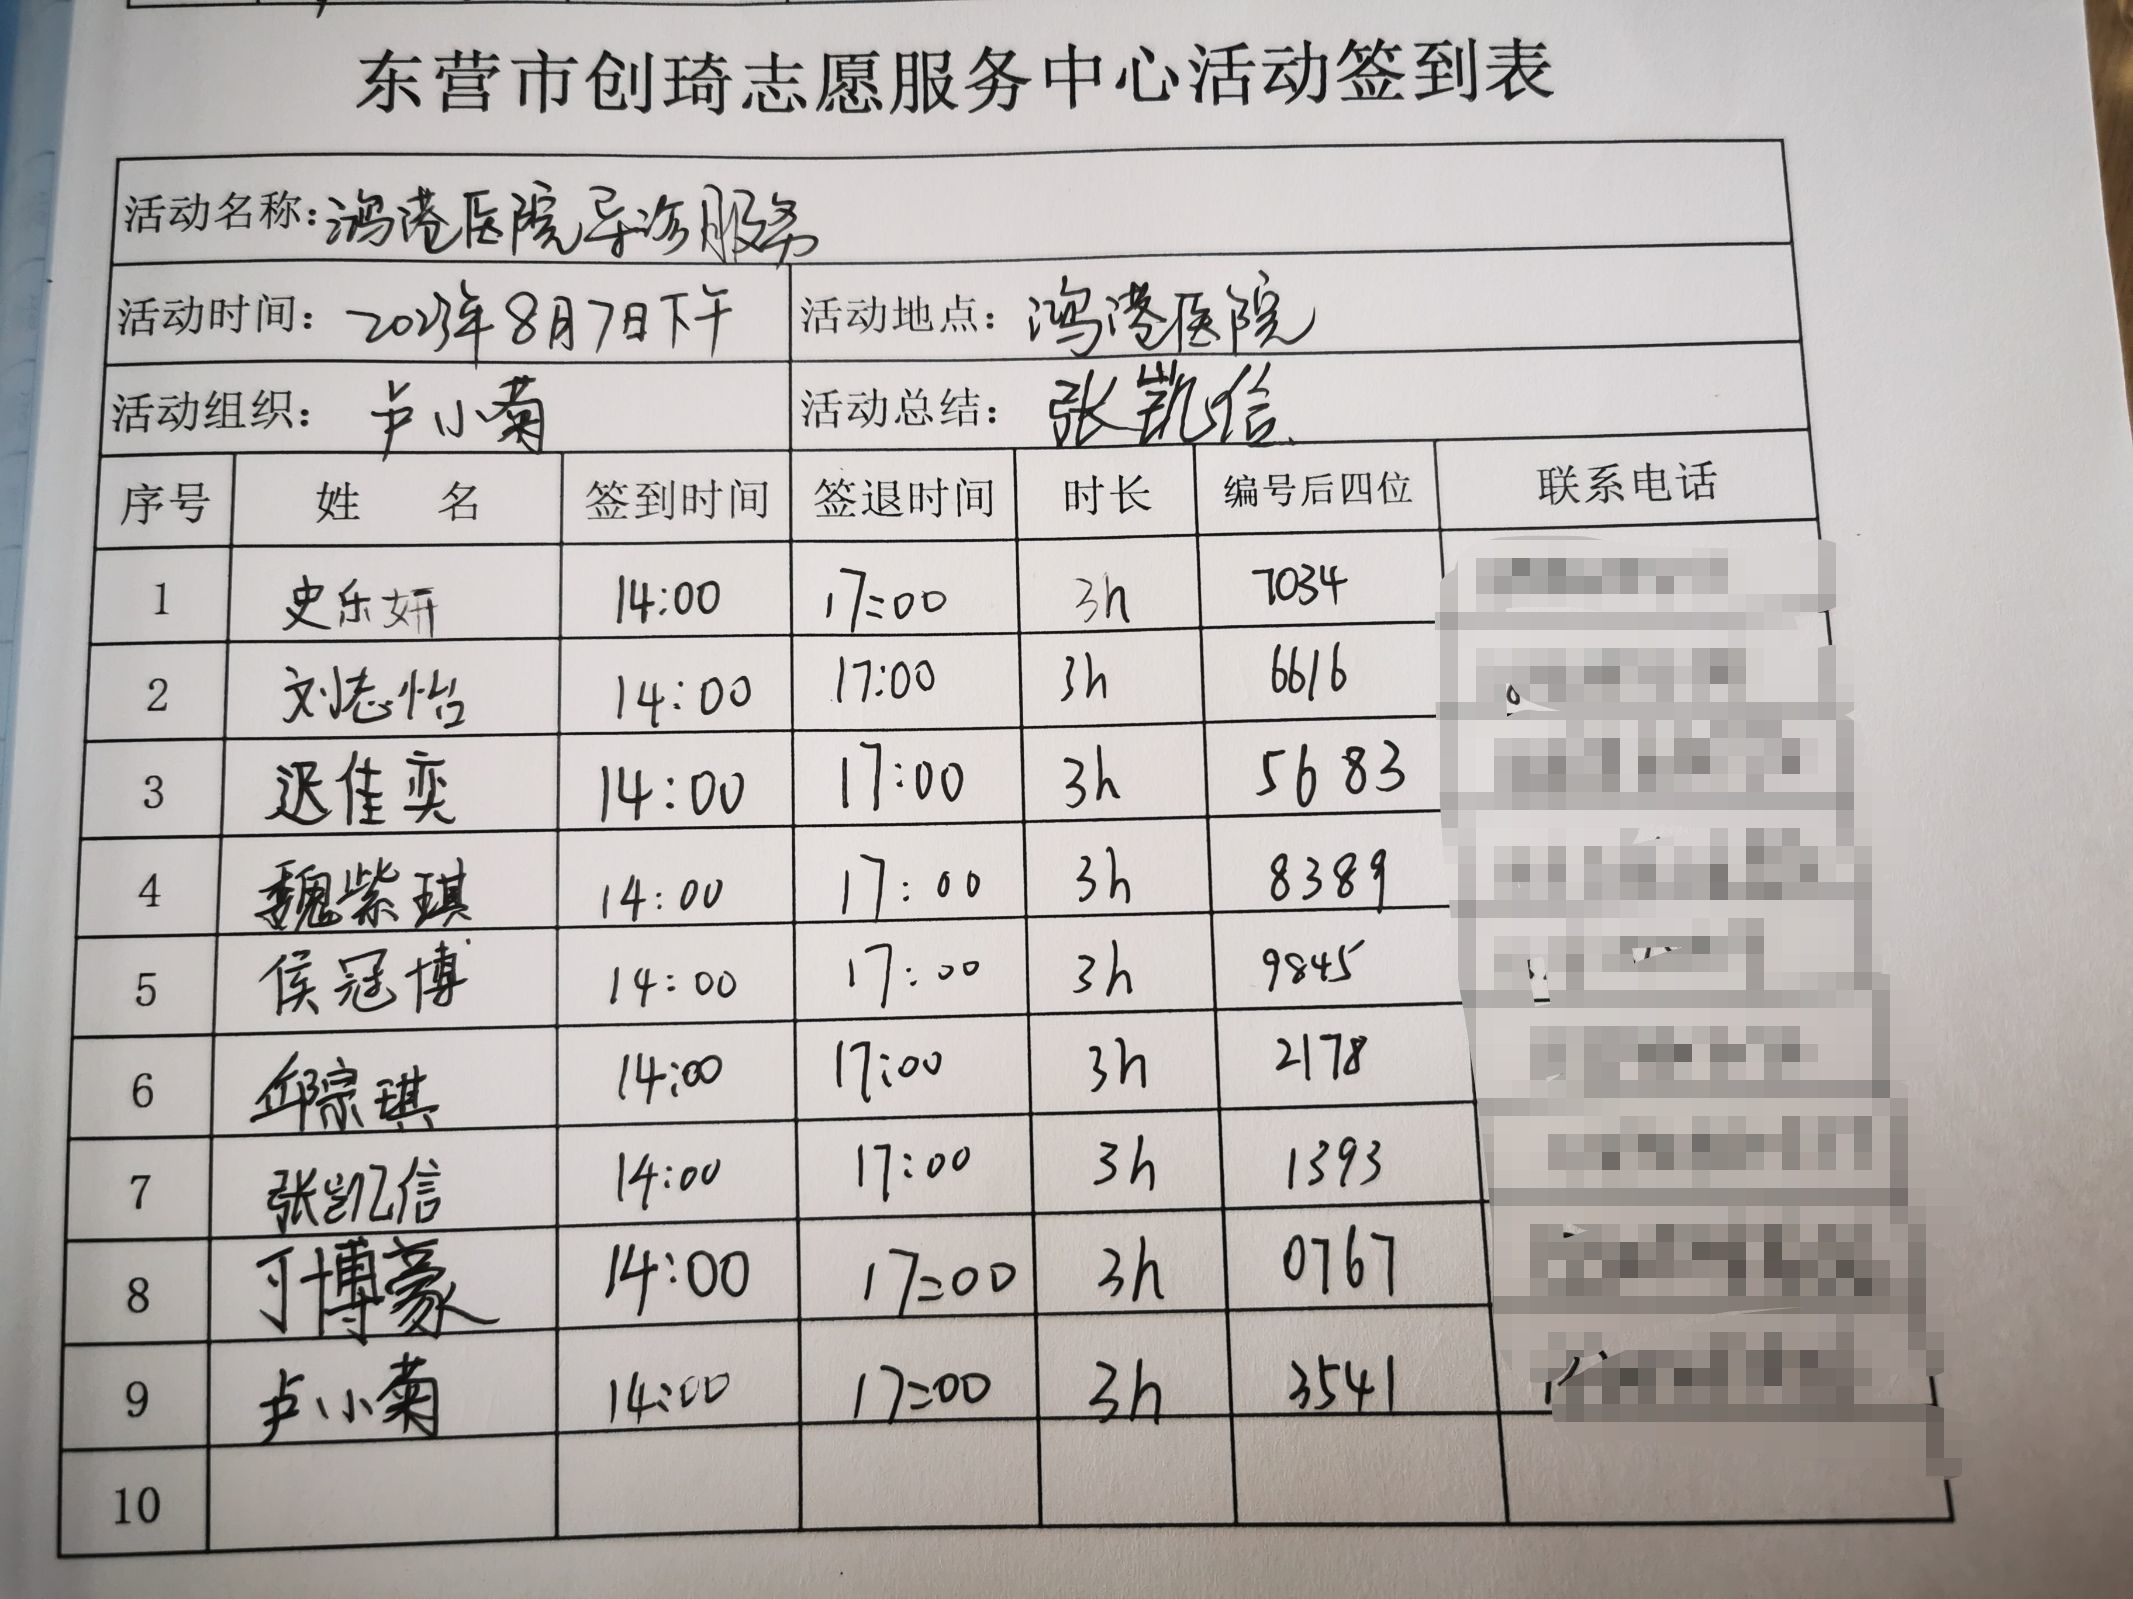 东营市创琦志愿服务中心活动签到表
活动名称：鸿港医院导诊服务
活动时间：2023年8月7日下午 活动地点：鸿港医院
活动组织：卢小菊 活动总结：张凯信
序号 姓 名 签到时间 签退时间 时长 编号后四位 联系电话
1 史乐妍 14:00 17:00 3h 7034
2 刘志怡 14:00 17:00 3h 6616
3 迟佳奕 14:00 17:00 3h 5683
4 魏紫琪 14:00 17:00 3h 8389
5 侯冠博 14:00 17:00 3h 9845
6 邱宗琪 14:00 17:00 3h 2178
7 张凯信 14:00 17:00 3h 1393
8 博豪 14:00 17:00 3h 0767
9 卢小菊 14:00 17:00 3h 3541
10